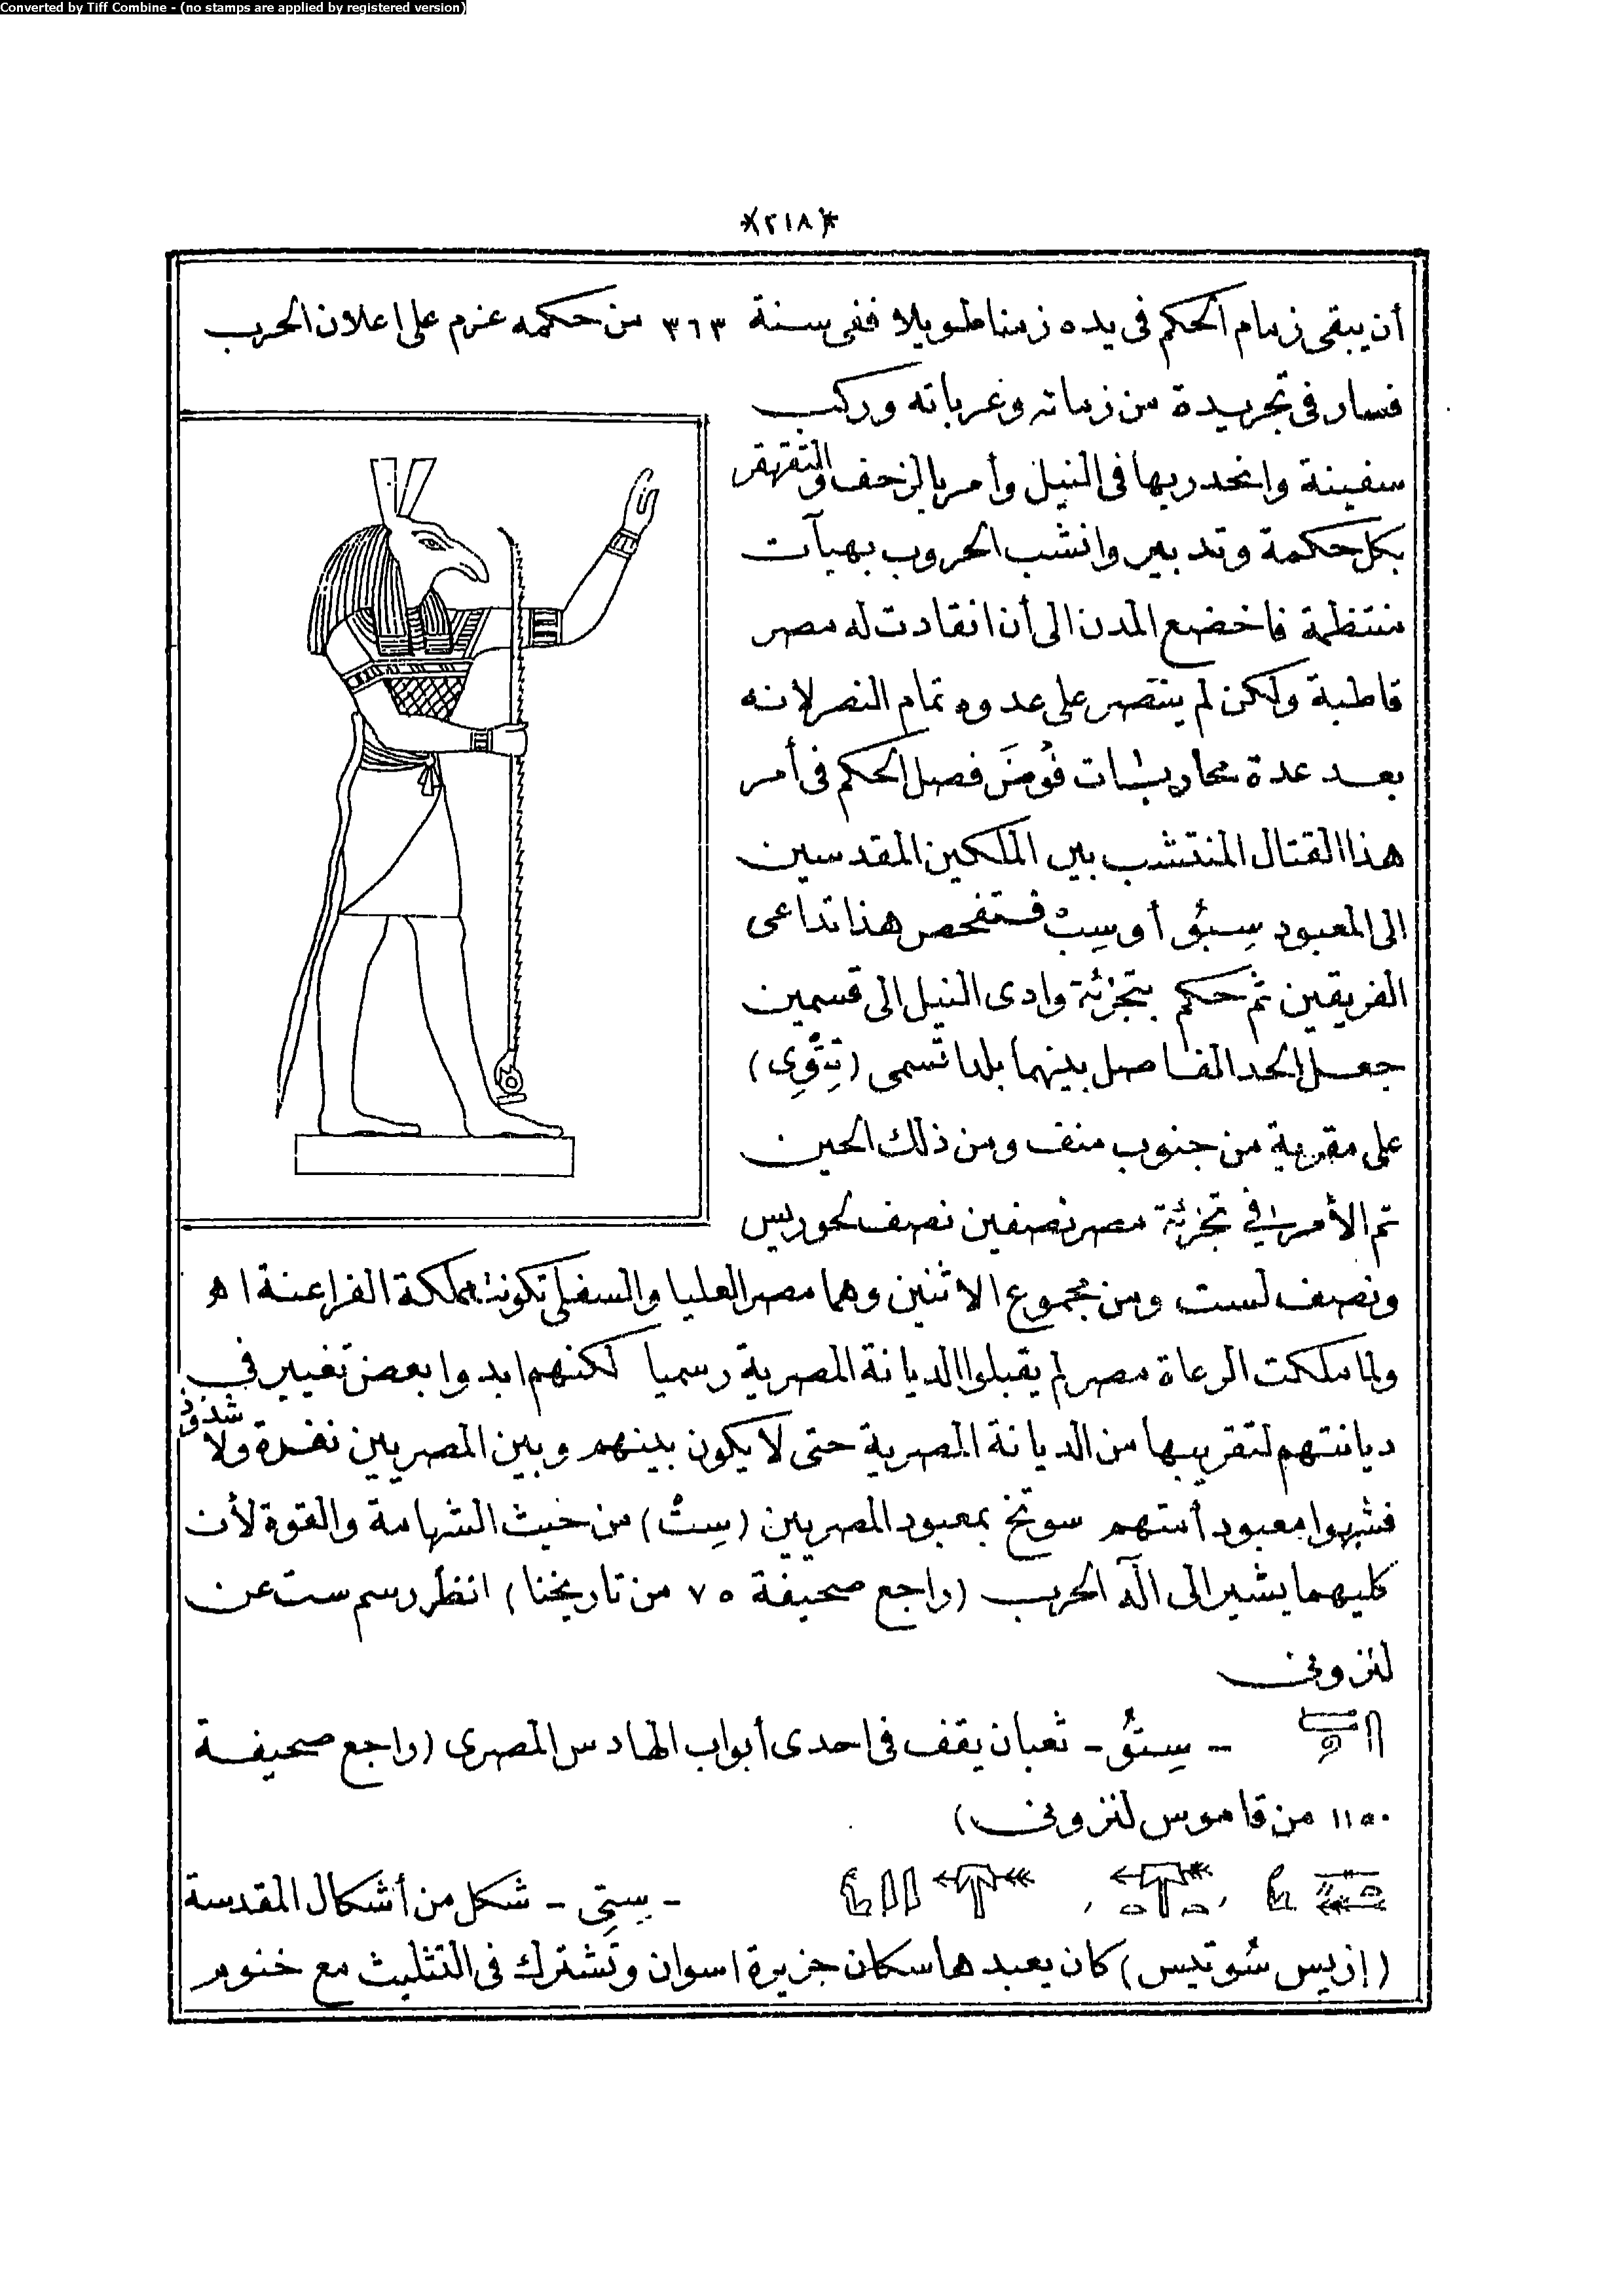 Converted by Tiff Combine - (no stamps are applied by registered version)
*(٢١٨)*
أن يبقى زمام الحكم فى يده زمنا طويلا ففى سنة ٣٦٣ من حكمه عزم على اعلان الحرب
فسار فى تجريدة من زماته وعرباته وركب
سفينة وانحدر بها فى النيل وأمر بالزحف والتقهقر
بكل حكمة وتدبير وانشب الحروب بهيآت
منتظمة فاخضع المدن الى أن انقادت له مصر
قاطبة ولكن لم ينتصر على عدوه تمام النصر لانه
بعد عدة محاربات فُوضَ فصل الحكم فى أمر
هذا القتال المنتشب بين الملكين المقدسين
الى المعبود سِبُو أو سِبْ فتفحص هذا تداعى
الفريقين ثم حكم بتجزئة وادى النيل الى قسمين
جعل الحد الفاصل بينهما بلدا تسمى (تِتْوِى)
على مقربة من جنوب منف ومن ذلك الحين
تم الأمر فى تجزئة مصر نصفين نصف لحوريس
ونصف لست ومن مجموع الاثنين وهما مصر العليا والسفلى تكونت مملكة الفراعنة اﻫ
ولما ملكت الرعاة مصر لم يقبلوا الديانة المصرية رسميا لكنهم ابدوا بعض تغيير فى
ديانتهم لتقريبها من الديانة المصرية حتى لا يكون بينهم وبين المصريين نفرة ولا شذوذ
فشبهوا معبود أمتهم سوتخ بمعبود المصريين (سِتْ) من حيث الشهامة والقوة لأن
كليهما يشير الى اله الحرب (راجع صحيفة ٧٥ من تاريخنا) انظر رسم ست عن
لنزونى
- سِتُو - ثعبان يقف فى احدى أبواب الهادس المصرى (راجع صحيفة
١١٥٠ من قاموس لنزونى)
- سِتِى - شكل من أشكال المقدسة
(إزيس سُوتيس) كان يعبدها سكان جزيرة اسوان وتشترك فى التثليث مع خنوم